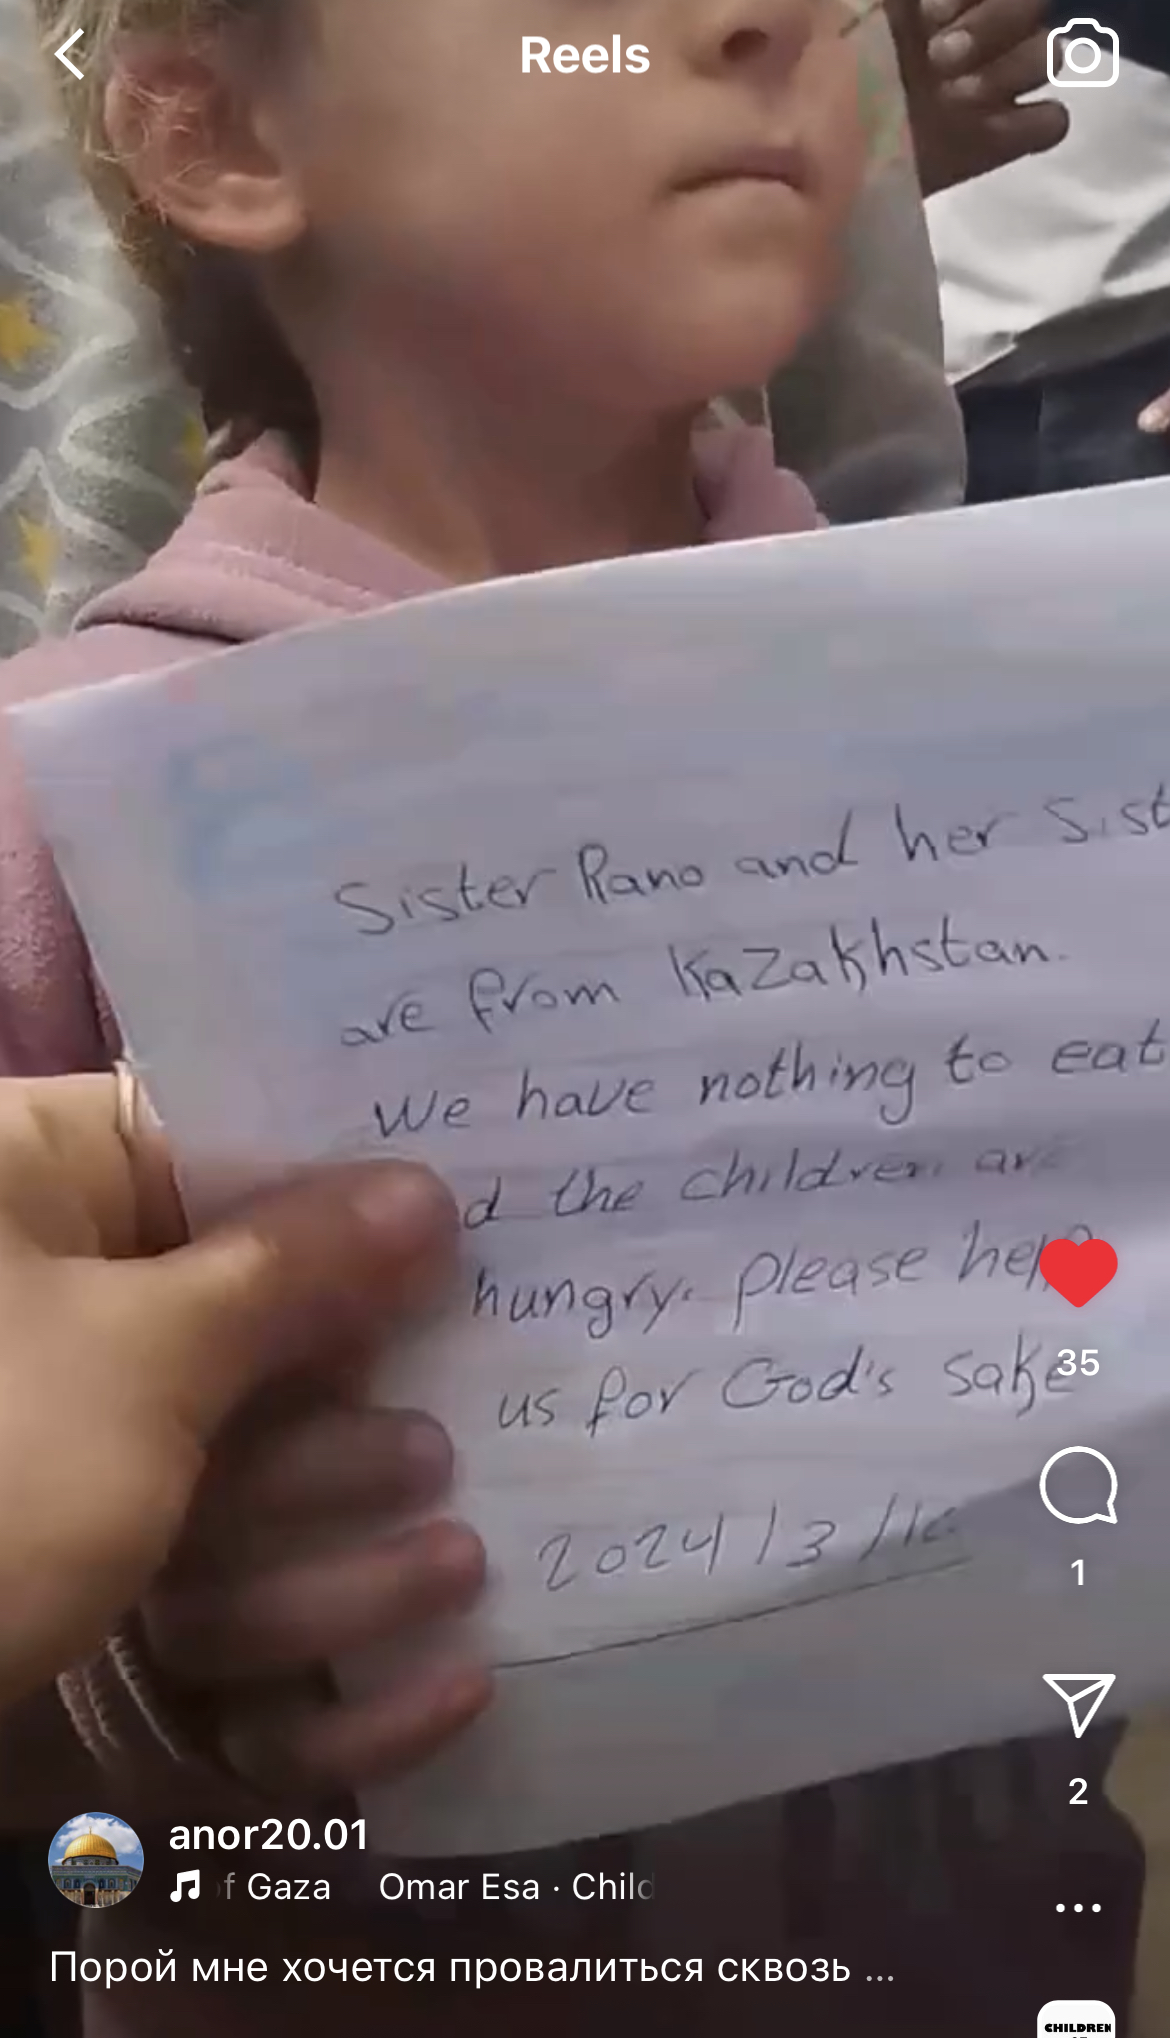 Reels
Sister Rano and her Sist
are from Kazakhstan.
We have nothing to eat
d the children are
hungry. please help
us for God's sake
35
1
2024/3/
2
anor20.01
f Gaza Omar Esa · Child
Порой мне хочется провалиться сквозь ...
CHILDREN